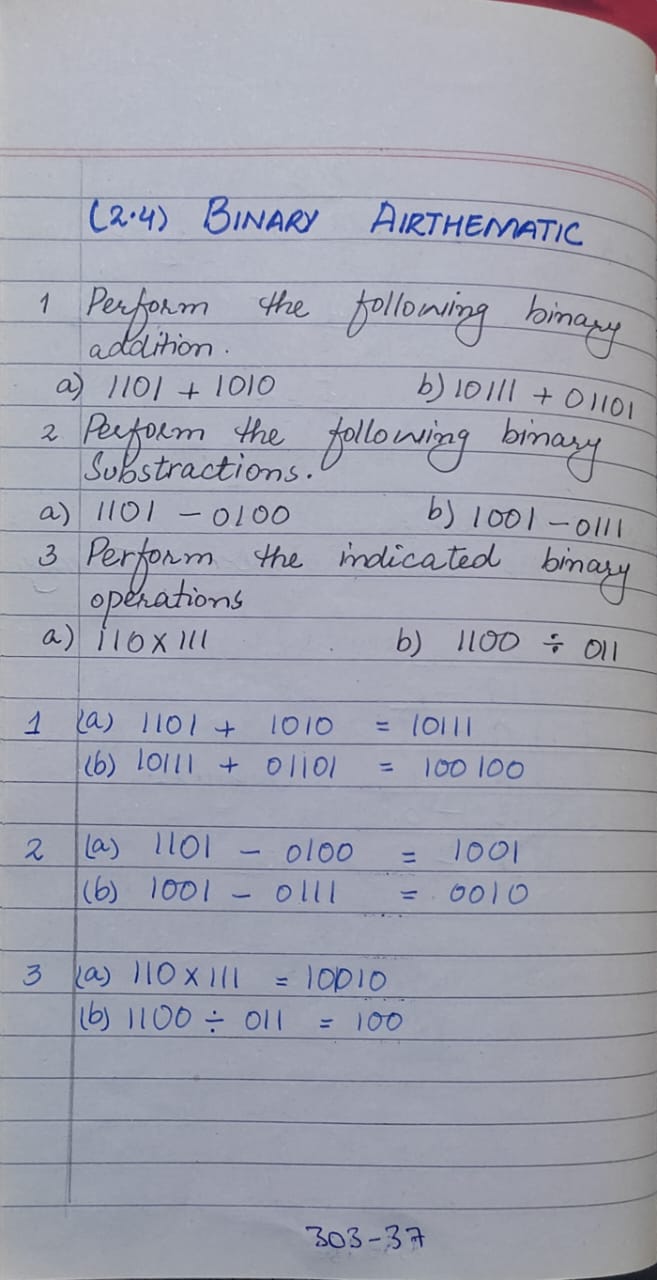 (2.4) BINARY AIRTHEMATIC
1 Perform the following binary
addition.
a) 1101 + 1010 b) 10111 + 01101
2 Perform the following binary
Substractions.
a) 1101 - 0100 b) 1001 - 0111
3 Perform the indicated binary
operations
a) 110 x 111 b) 1100 ÷ 011
1 (a) 1101 + 1010 = 10111
(b) 10111 + 01101 = 100100
2 (a) 1101 - 0100 = 1001
(b) 1001 - 0111 = 0010
3 (a) 110 x 111 = 10010
(b) 1100 ÷ 011 = 100
303-37